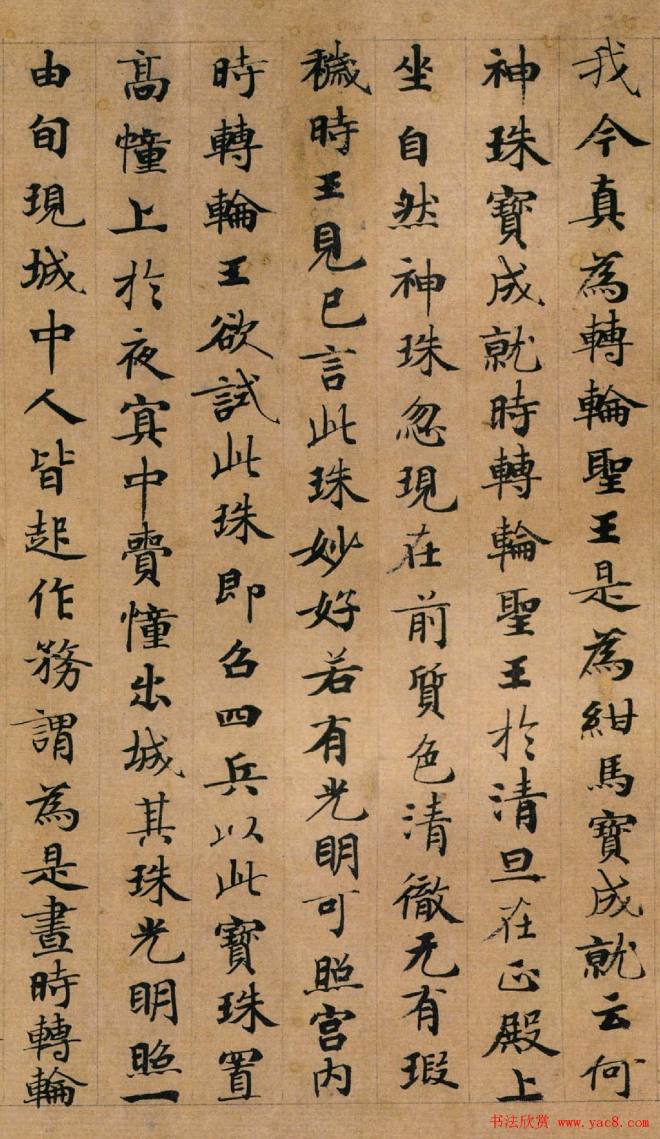 我今真為轉輪聖王是為紺馬寶成就云何
神珠寶成就時轉輪聖王於清旦在正殿上
坐自然神珠忽現在前質色清徹无有瑕
穢時王見已言此珠妙好若有光明可照宮内
時轉輪王欲試此珠即召四兵以此寶珠置
高幢上於夜冥中賷幢出城其珠光明照一
由旬現城中人皆起作務謂為是晝時轉輪
书法欣赏 www.yac8.com